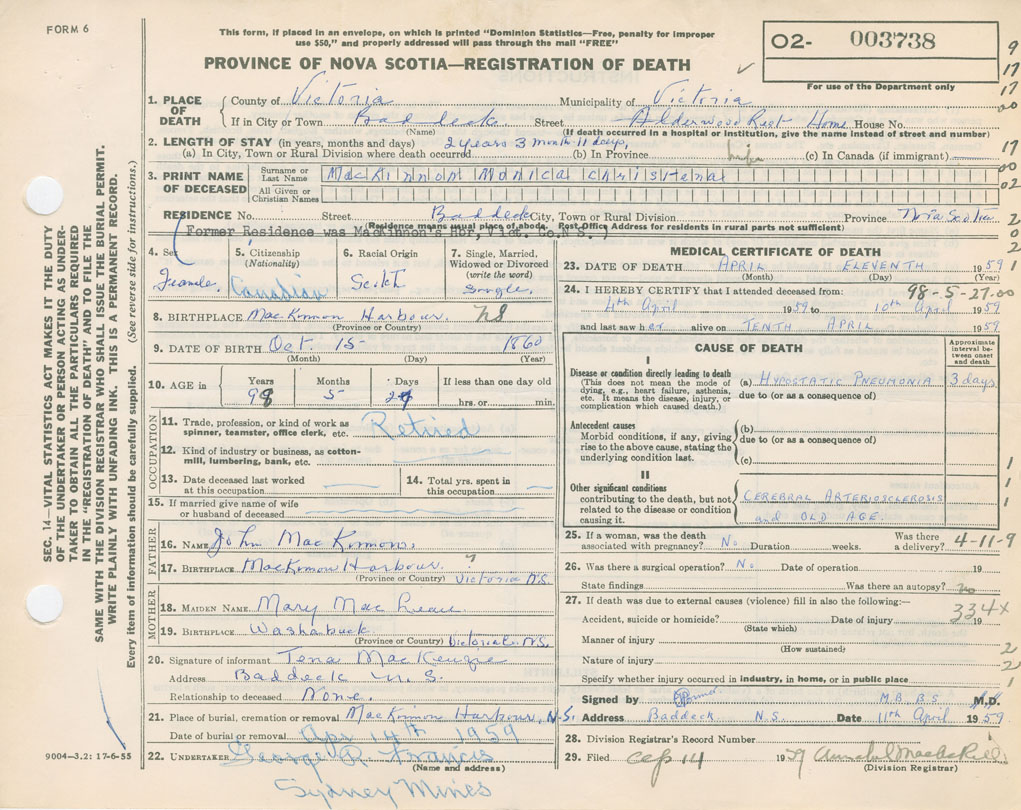 FORM 6
This form, if placed in an envelope, on which is printed "Dominion Statistics—Free, penalty for improper
use $50," and properly addressed will pass through the mail "FREE"
PROVINCE OF NOVA SCOTIA—REGISTRATION OF DEATH
O2- 003738
For use of the Department only
1. PLACE OF DEATH
County of Victoria Municipality of Victoria
If in City or Town Baddeck Street Alderwood Rest Home House No.
(Name) (If death occurred in a hospital or institution, give the name instead of street and number)
2. LENGTH OF STAY (in years, months and days) 2 years 3 month 11 days,
(a) In City, Town or Rural Division where death occurred (b) In Province life (c) In Canada (if immigrant)
3. PRINT NAME OF DECEASED
Surname or Last Name MacKinnon Monica Christena
All Given or Christian Names
RESIDENCE No. Street Baddeck City, Town or Rural Division Province Nova Scotia
(Residence means usual place of abode. Post Office Address for residents in rural parts not sufficient)
Former Residence was MacKinnon's Hbr, Vict. Co. N.S.
4. Sex Female
5. Citizenship (Nationality) Canadian
6. Racial Origin Scotch
7. Single, Married, Widowed or Divorced (write the word) Single
8. BIRTHPLACE MacKinnon Harbour NS
(Province or Country)
9. DATE OF BIRTH Oct. 15 1860
(Month) (Day) (Year)
10. AGE in Years 98 Months 5 Days If less than one day old hrs. or min.
OCCUPATION
11. Trade, profession, or kind of work as spinner, teamster, office clerk, etc. Retired
12. Kind of industry or business, as cotton-mill, lumbering, bank, etc.
13. Date deceased last worked at this occupation
14. Total yrs. spent in this occupation
15. If married give name of wife or husband of deceased
FATHER
16. NAME John MacKinnon
17. BIRTHPLACE MacKinnon Harbour Victoria N.S.
(Province or Country)
MOTHER
18. MAIDEN NAME Mary MacLean
19. BIRTHPLACE Washabuck Victoria Co. N.S.
(Province or Country)
20. Signature of informant Tena MacKenzie
Address Baddeck N.S.
Relationship to deceased None.
21. Place of burial, cremation or removal MacKinnon Harbour, N.S.
Date of burial or removal Apr 14th 1959
22. UNDERTAKER George R. Francis
(Name and address)
Sydney Mines
MEDICAL CERTIFICATE OF DEATH
23. DATE OF DEATH APRIL ELEVENTH 1959
(Month) (Day) (Year)
24. I HEREBY CERTIFY that I attended deceased from: 98-5-27.00
4th April 1959 to 10th April 1959
and last saw her alive on TENTH APRIL 1959
CAUSE OF DEATH
Approximate interval between onset and death
I
Disease or condition directly leading to death
(This does not mean the mode of dying, e.g., heart failure, asthenia, etc. It means the disease, injury, or complication which caused death.)
(a) HYPOSTATIC PNEUMONIA 3 days
due to (or as a consequence of)
Antecedent causes
Morbid conditions, if any, giving rise to the above cause, stating the underlying condition last.
(b)
due to (or as a consequence of)
(c)
II
Other significant conditions
contributing to the death, but not related to the disease or condition causing it.
CEREBRAL ARTERIOSCLEROSIS
and OLD AGE.
25. If a woman, was the death associated with pregnancy? No Duration weeks. Was there a delivery? 4-11-9
26. Was there a surgical operation? No Date of operation 19
State findings Was there an autopsy? no
27. If death was due to external causes (violence) fill in also the following:—
334X
Accident, suicide or homicide? Date of injury 19
(State which)
Manner of injury
(How sustained)
Nature of injury
Specify whether injury occurred in industry, in home, or in public place
Signed by M.B. B.S. M.D.
Address Baddeck N.S. Date 11th April 1959
28. Division Registrar's Record Number
29. Filed 14 1959
(Division Registrar)
9
17
17
00
17
00
02
2
0
2
1
1
1
1
2
2
1
SEC. 14—VITAL STATISTICS ACT MAKES IT THE DUTY
OF THE UNDERTAKER OR PERSON ACTING AS UNDER-
TAKER TO OBTAIN ALL THE PARTICULARS REQUIRED
IN THE "REGISTRATION OF DEATH" AND TO FILE THE
SAME WITH THE DIVISION REGISTRAR WHO SHALL ISSUE THE BURIAL PERMIT.
WRITE PLAINLY WITH UNFADING INK. THIS IS A PERMANENT RECORD.
Every item of information should be carefully supplied. (See reverse side for instructions.)
9004—3.2: 17-6-55